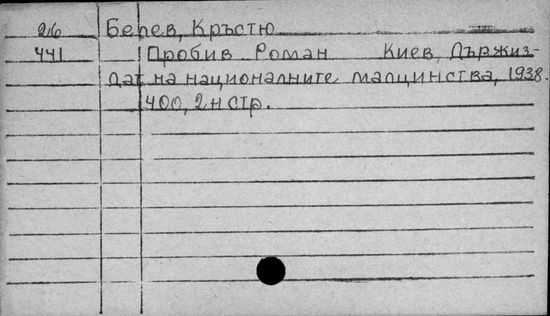 26 Берев, Кръстю
441 Пробив Роман Киев, Държиз-
дат на националните малцинства, 1938.
400, 2н стр.